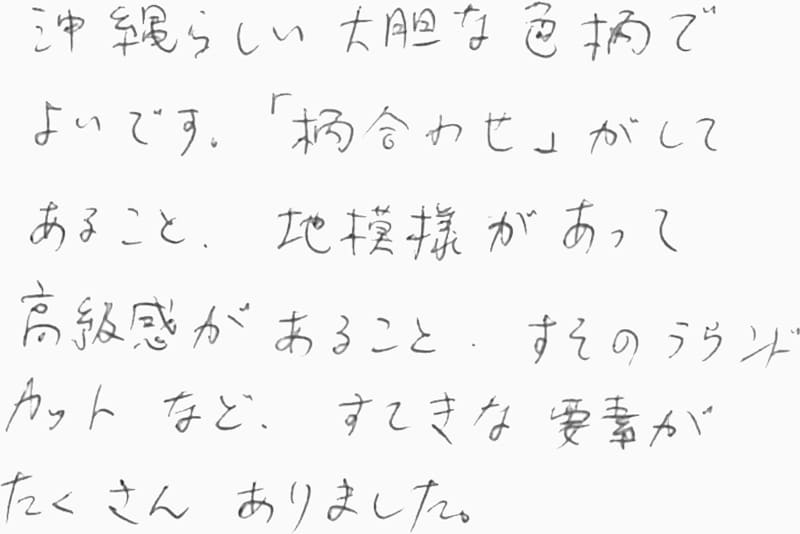 沖縄らしい 大胆な色柄で
よいです。「柄合わせ」がして
あること、地模様があって
高級感があること、すそのラウンド
カットなど、すてきな要素が
たくさんありました。